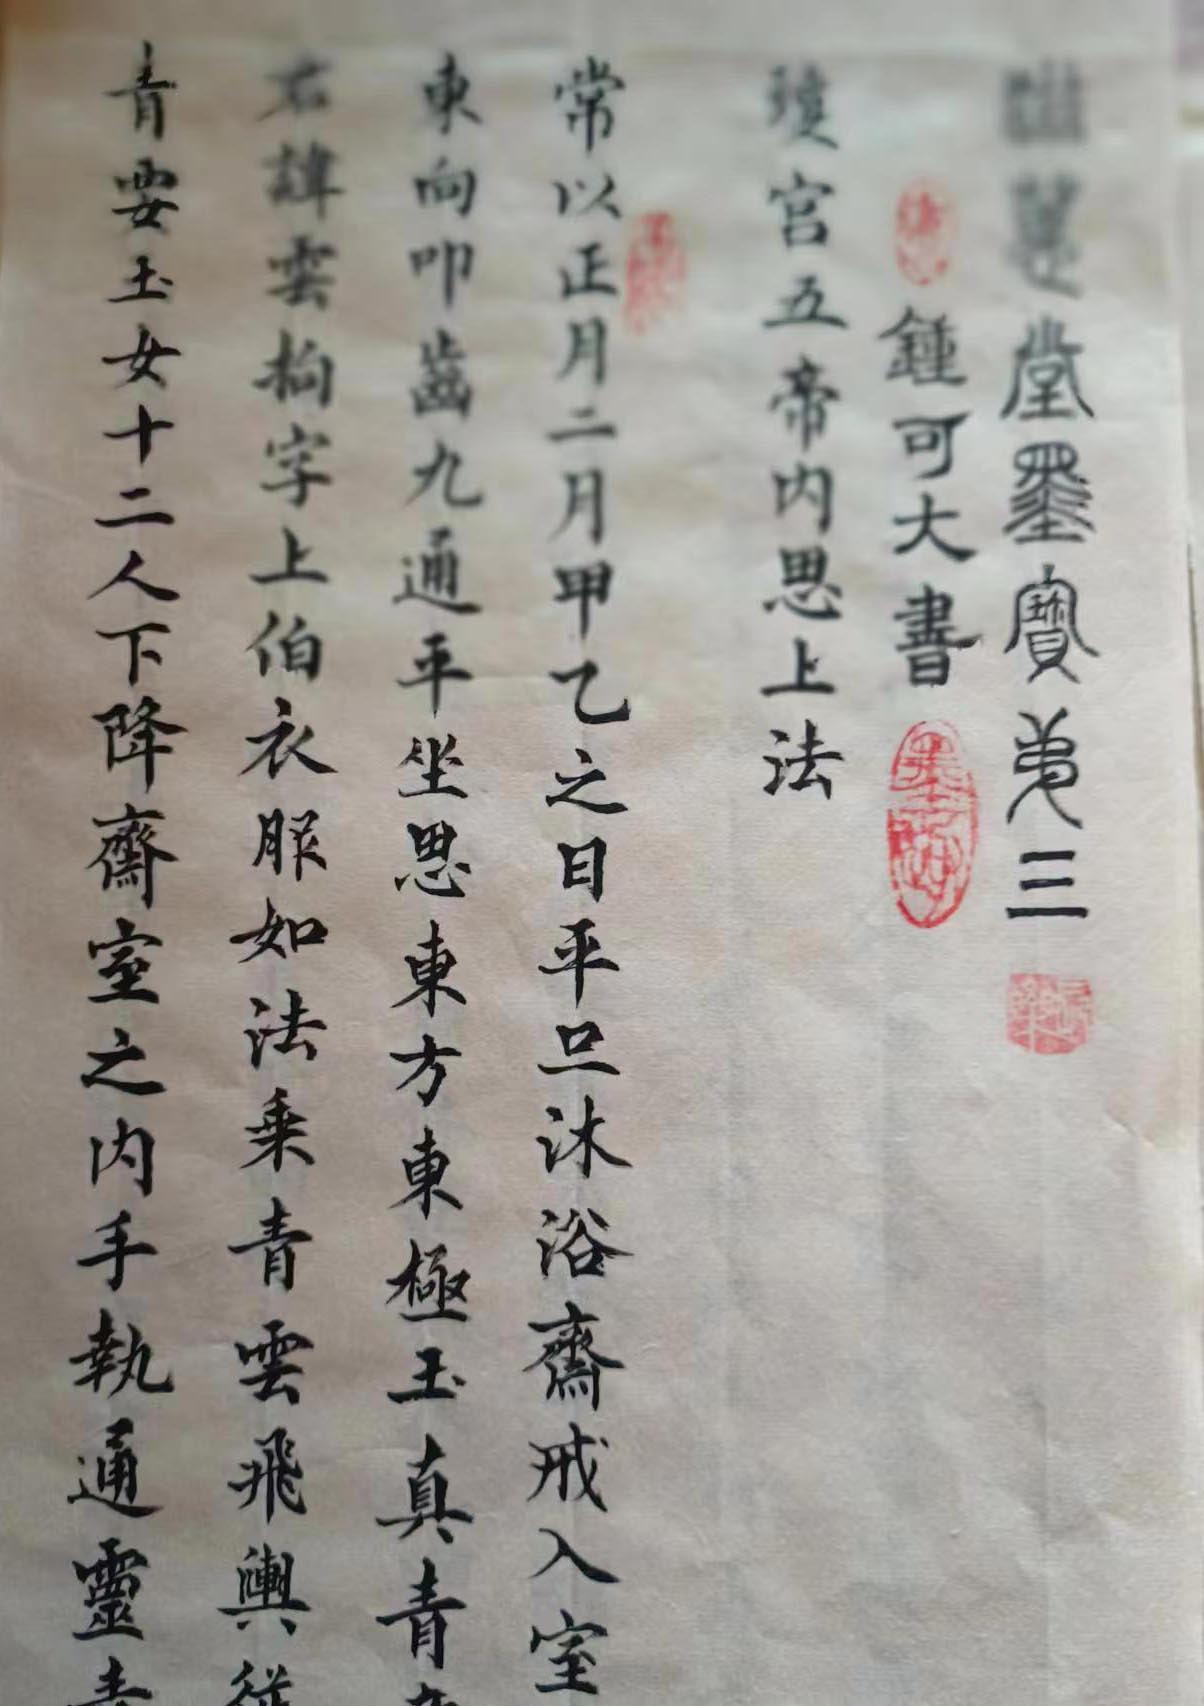 蕙堂墨寶弟三
鍾可大書
瓊宮五帝内思上法
常以正月二月甲乙之日平旦沐浴齋戒入室
東向叩齒九通平坐思東方東極玉真青
君諱雲拘字上伯衣服如法乘青雲飛輿從
青要玉女十二人下降齋室之内手執通靈青